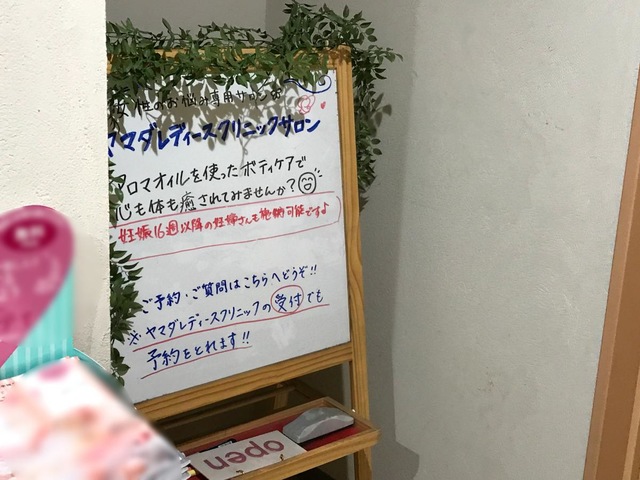 女性のお悩み専用サロン
ヤマダレディースクリニックサロン
アロマオイルを使ったボディケアで
心も体も癒されてみませんか?
妊娠16週以降の妊婦さんも施術可能ですよ
ご予約・ご質問はこちらへどうぞ!!
※ヤマダレディースクリニックの受付でも
予約をとれます!!
open